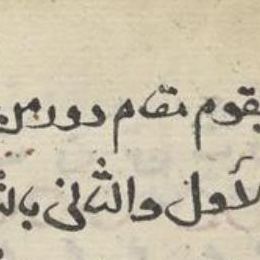 يقوم مقام دور من
الأول والثاني بالث